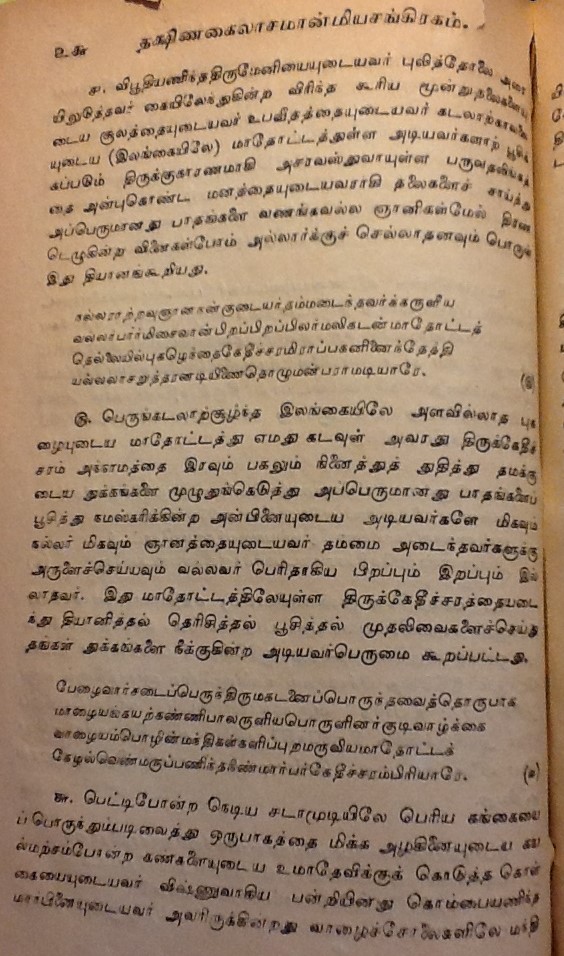 உகூ தக்ஷிணகைலாசமான்மியசங்கிரகம்.
ச. விபூதியணிந்ததிருமேனியையுடையவர் புலித்தோலை அரை
யிலுடுத்தவர் கையிலேந்துகின்ற விரிந்த கூரிய மூன்றுதலைகளையு
டைய சூலத்தையுடையவர் உபவீதத்தையுடையவர் கடலாற்காவலை
யுடைய (இலங்கையிலே) மாதோட்டத்துள்ள அடியவர்களாற் பூசிக்
கப்படும் திருக்குகாரணமாகி அசரவஸ்துவாயுள்ள பருவதலிங்கத்
தை அன்புகொண்ட மனத்தையுடையவராகி தலைகளைச் சாய்த்து
அப்பெருமானது பாதங்களை வணங்கவல்ல ஞானிகள்மேல் திரண்
டெழுகின்ற வினைகள்போம் அல்லார்க்குச் செல்லாதனவும் பொருள்
இது தியானங்கூறியது.
நல்லராற்றவுஞானநன்குடையர்தம்மடைந்தவர்க்கருளிய
வல்லர்பார்மிசைவான்பிறப்பிறப்பிலர்மலிகடன்மாதோட்டத்
தெல்லையில்புகழெந்தைகேதீச்சரமிராப்பகனினைந்தேத்தி
யல்லலாசறுத்தரனடியிணைதொழுமன்பராமடியாரே. (ரு)
ரு. பெருங்கடலாற்சூழ்ந்த இலங்கையிலே அளவில்லாத புக
ழையுடைய மாதோட்டத்து எமது கடவுள் அவரது திருக்கேதீச்
சரம் அக்காமத்தை இரவும் பகலும் நினைத்துத் துதித்து தமக்கு
டைய துக்கங்களை முழுதுங்கெடுத்து அப்பெருமானது பாதங்களைப்
பூசித்து நமஸ்கரிக்கின்ற அன்பினையுடைய அடியவர்களே மிகவும்
நல்லர் மிகவும் ஞானத்தையுடையவர் தம்மை அடைந்தவர்களுக்கு
அருளைச்செய்யவும் வல்லவர் பெரிதாகிய பிறப்பும் இறப்பும் இல்
லாதவர். இது மாதோட்டத்திலேயுள்ள திருக்கேதீச்சரத்தையடை
ந்து தியானித்தல் தெரிசித்தல் பூசித்தல் முதலிவைகளைச்செய்து
தங்கள் துக்கங்களை நீக்குகின்ற அடியவர்பெருமை கூறப்பட்டது.
பேழைவார்சடைப்பெருந்திருமகடனைப்பொருந்தவைத்தொருபாக
மாழையங்கயற்கண்ணிபாலருளியபொருளினர்குடிவாழ்க்கை
வாழையம்பொழின்மந்திகள்களிப்புறமருவியமாதோட்டக்
கேழல்வெண்மருப்பணிந்தநீண்மார்பர்கேதீச்சரம்பிரியாரே. (சு)
சு. பெட்டிபோன்ற நெடிய சடாமுடியிலே பெரிய கங்கையை
ப் பொருந்தும்படிவைத்து ஒருபாகத்தை மிக்க அழகினையுடைய கய
ல்மற்சம்போன்ற கண்களையுடைய உமாதேவிக்குக் கொடுத்த கொள்
கையையுடையவர் விஷ்ணுவாகிய பன்றியினது கொம்பையணிந்த
மார்பினையுடையவர் அவரிருக்கின்றது வாழைச்சோலைகளிலே மந்தி